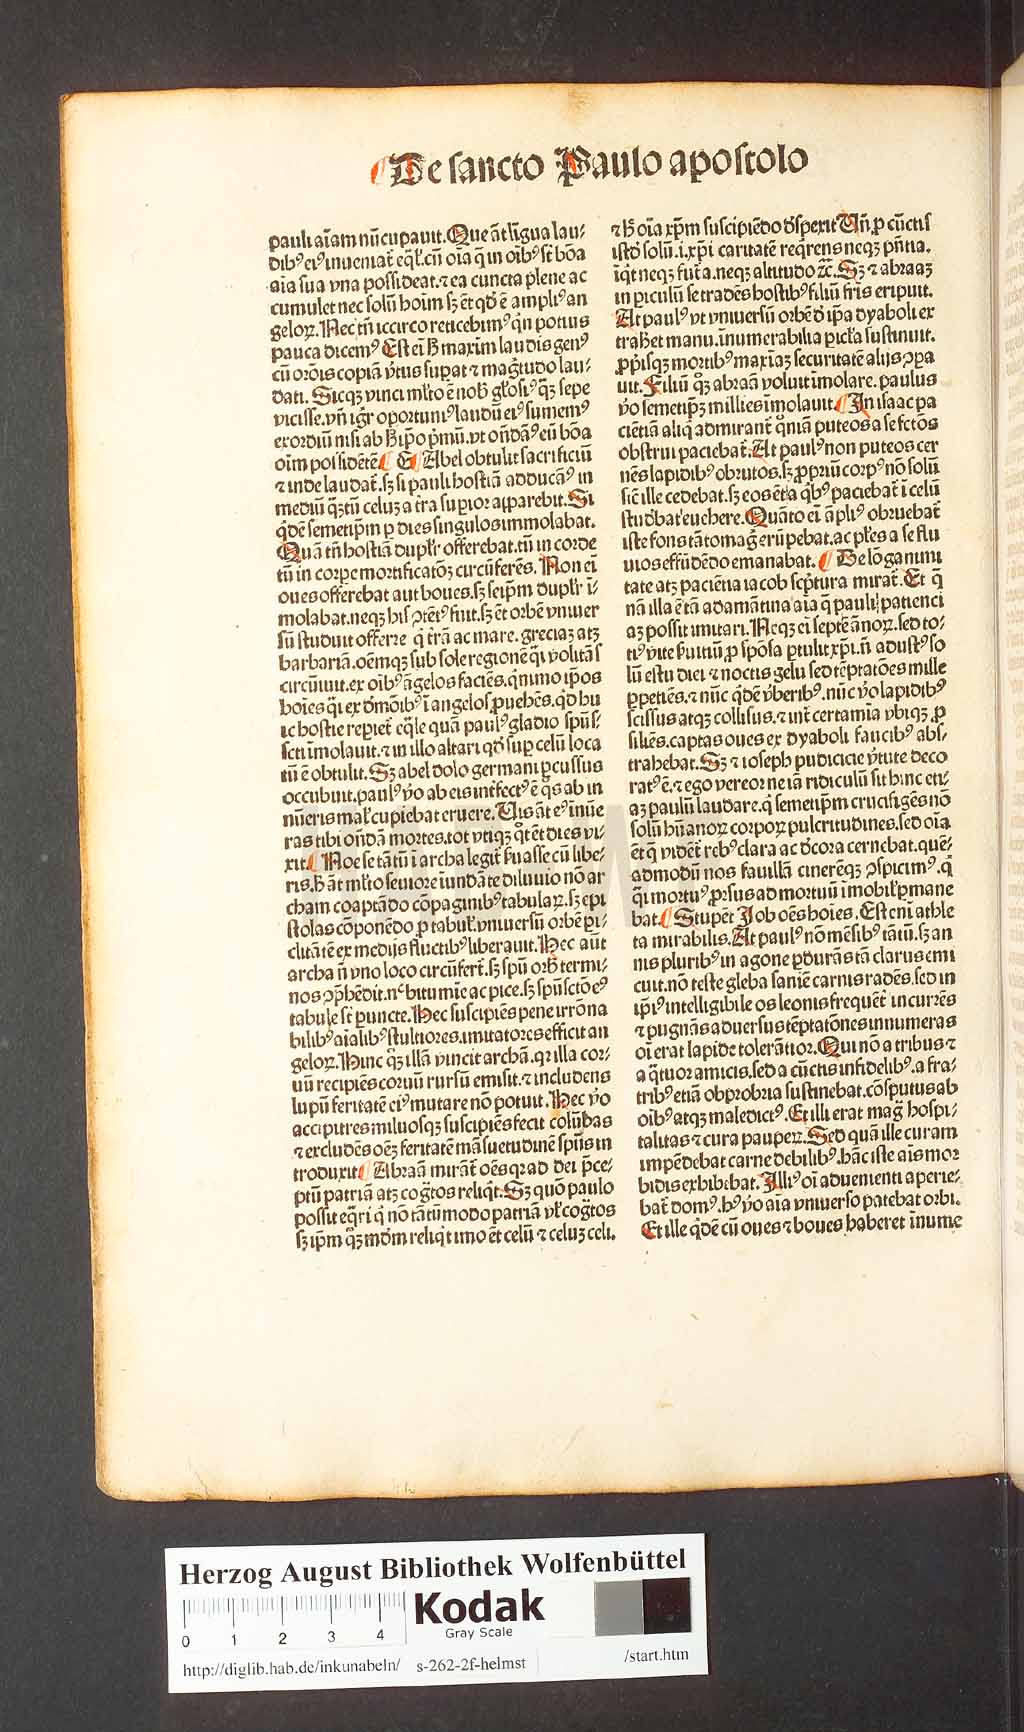 De sancto Paulo apostolo
pauli aīam nūcupauit. Que āt līgua lau⸗
dibꝰ eiꝰ inueniat᷑ eq̄l. cū oīa q̄ in oībꝰ st̄ bōa
aīa sua vna possideat. ⁊ ea cuncta plene ac
cumulet nec solū hoīm sꝫ ēt qd̄ ē ampliꝰ an
geloꝝ. Nec tn̄ iccirco reticebimꝰ qn̄ potius
pauca dicemꝰ Est ei H̄ maxim̄ laudis genꝰ
cū orōis copiā v̓tus suꝑat ⁊ mag̓tudo lau⸗
dati. Sicqꝫ vinci ml̓to ē nob̓ gl̓osiꝰ qꝫ sepe
vicisse. vn̄ igr̄ oportuniꝰ laudū eiꝰ sumemꝰ
exordiū nisi ab H̄ ip̄o p̄mū. vt on̄dāꝰ eū bōa
oīm possidētē ¶ E ¶ Abel obtulit sacrificiū
⁊ inde laudat᷑. sꝫ si pauli hostiā adducāꝰ in
mediū qꝫtū celuꝫ a t̄ra suꝑior apparebit. Si
q̓dē semetip̄m ꝑ dies singulos immolabat.
Quā tn̄ hostiā dupl̓r offerebat. tū in corde
tū in corpe mortificatōꝫ circūferēs. Non ei
oues offerebat aut boues. sꝫ seip̄m dupl̓r ī⸗
molabat. neqꝫ hiſ ↄtētꝰ fuit. sꝫ ēt orbē vniuer
sū studuit offerre q̓ t̄rā ac mare. greciaꝫ atꝫ
barbariā. oēmqꝫ sub sole regionē q̓ī volitās
circūiuit. ex oībꝰ āgelos faciēs. q̓nimo ip̄os
hoīes q̓ī ex dmōībꝰ ī angelos ꝓuehēs. qd̄ hu
ic hostie reꝑiet᷑ eq̄le quā paulꝰ gladio spūs⸗
scti īmolauit. ⁊ in illo altari qd̄ suꝑ celū loca
tū ē obtulit. Sꝫ abel dolo germani ꝑcussus
occubuit. paulꝰ v̓o ab eis int̓fectꝰ ē qͦs ab in
nūeris mal̓ cupiebat eruere. Uis āt eꝰ inūe
ras tibi on̄dā mortes. tot vtiqꝫ qͦt ēt dies vi⸗
xit ¶ Noe se tātū ī archa legit᷑ fuasse cū libe⸗
ris. H̄ āt ml̓to seuiore īundāte diluuio nō ar
cham coaptādo cōpaginibꝰ tabulaꝝ. sꝫ epi
stolas cōponēdo ꝑ tabul̓. vniuersū orbē ꝑi⸗
clitātē ex medijs fluctibꝰ liberauit. Hec aūt
archa n̄ vno loco circūfert᷑. sꝫ spū orb̓ termi⸗
nos ↄp̄hēdit. nͨ bitumīe ac pice. sꝫ spūscto eꝰ
tabule st̄ ꝑuncte. Hec suscipiēs pene irrōna
bilibꝰ aīalibꝰ stultiores. imitatores efficit an
geloꝝ. Hinc qꝫ illā vincit archā. qꝛ illa cor⸗
uū recipiēs coruū rursū emisit. ⁊ includens
lupū feritatē eiꝰ mutare nō potuit. Hec v̓o
accipitres miluosqꝫ suscipiēs fecit colūbas
⁊ excludēs oēꝫ feritatē māsuetudinē spūs in
troduxit ¶ Abraā mirāt᷑ oēs qꝛ ad dei p̄ce⸗
ptū patriā atꝫ cog̓tos reliq̓t. Sꝫ quō paulo
possit eq̄ri q̓ nō tātūmodo patriā vl̓ cog̓tos
sꝫ ip̄m qꝫ mūdm̄ reliq̓t imo ēt celū ⁊ celuꝫ celi.
⁊ H̄ oīa xp̄m suscipiēdo dspexit Un̄ ꝓ cūctis
istꝭ solū. i. xp̄i caritatē reqͥrens neqꝫ p̄ntia.
īqͥt neqꝫ fut̓a. neqꝫ altitudo ⁊c̄. Sꝫ ⁊ abraaꝫ
in ꝑiculū se tradēs hostibꝰ filiū fr̄is eripuit.
At paulꝰ vt vniuersū orbē d̓ ip̄a dyaboli ex
traheret manu. īnumerabilia picl̓a sustinuit.
ꝓp̓isqꝫ mortibꝰ maxīaꝫ securitatē alijs ↄpa
uit. Filiū qꝫ abraā voluit īmolare. paulus
v̓o semetip̄ꝫ millies īmolauit. ¶ In isaac pa
ciētiā aliq̓ admirant᷑ qͦniā puteos a se fctōs
obstrui paciebat᷑. At paulꝰ non puteos cer
nēs lapidibꝰ obrutos. sꝫ ꝓpriū corpꝰ nō solū
sic̄ ille cedebat. sꝫ eos ēt a q̓bꝰ paciebat᷑ ī celū
studebat euehere. Quāto ei āpliꝰ obruebat᷑
iste fons tāto mag̓ erūpebat. ac pl̓es a se flu
uios effūdēdo emanabat. ¶ De lōganimi
tate atꝫ paciētia iacob scp̄tura mirat᷑. Et q̄
nā illa ē tā adamātina aīa q̄ pauli patienci
aꝫ possit imitari. Neqꝫ ei septē ānoꝝ. sed to⸗
tiꝰ vite fuitiū ꝓ sposa ꝑtulit xp̄i. n̄ adustꝰ so
lū estu diei ⁊ noctis gelu sed tēptatōes mille
ꝑpetiēs. ⁊ nūc q̓dē v̓beribꝰ. nūc v̓o lapidibꝰ
scissus atqꝫ collisus. ⁊ int̓ certamīa vbiqꝫ ꝓ
siliēs. captas oues ex dyaboli faucibꝰ abs⸗
trahebat. Sꝫ ⁊ ioseph pudicicie v̓tute deco
ratꝰ ē. ⁊ ego vereor ne iā ridiculū sit hinc eti⸗
aꝫ paulū laudare. q̓ semetip̄m crucifigēs nō
solū hūanoꝝ corpoꝝ pulcritudines. sed oīa
ēt q̄ vident᷑ rebꝰ clara ac dcora cernebat. quē⸗
admodū nos fauillā cinerēqꝫ ↄspicimꝰ. q̓
q̓ī mortuꝰ ꝓrsus ad mortuū īmobil̓ ꝑmane
bat. ¶ Stupēt Job oēs hoīes. Est eni athle
ta mirabilis. At paulꝰ nō mēsibꝰ tātū. sꝫ an
nis pluribꝰ in agone ꝑdurās tā clarus emi
cuit. nō teste gleba saniē carnis radēs. sed in
ip̄iꝰ intelligibile os leonis frequēt᷑ incurrēs
⁊ pugnās aduersus tēptatōnes innumeras
oī erat lapide tolerātior. Qui nō a tribus ⁊
a q̓tuor amicis. sed a cūctis infidelibꝰ. a fra⸗
tribꝰ etiā obprobria sustinebat. cōsputus ab
oībꝰ atqꝫ maledictꝰ. Et illi erat mag̓ hospi⸗
talitas ⁊ cura pauꝑeꝝ. Sed quā ille curam
impēdebat carne debilibꝰ. hāc iste aīs mor
bidis exhibebat. Illiꝰ oī aduenienti aperie⸗
bat᷑ domꝰ. hꝰ v̓o aīa vniuerso patebat orbi.
Et ille q̓dē cū oues ⁊ boues haberet īnume
Herzog August Bibliothek Wolfenbüttel
0 1 2 3 4
Kodak
Gray Scale
http://diglib.hab.de/inkunabeln/ s-262-2f-helmst /start.htm